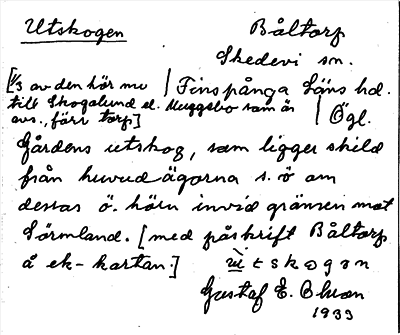 Utskogen
Båltorp
Skedevi sn.
[1/3 av den hör nu
till Skogalund el. Muggebo som är
avs., förr torp]
Finspånga Läns hd.
Ögl.
Gårdens utskog, som ligger skild
från huvudägorna s. ö om
dessas ö. hörn invid gränsen mot
Sörmland. [med påskrift Båltorp
å ek-kartan.]
ùtskogən
Gustaf E. Ohson
1933